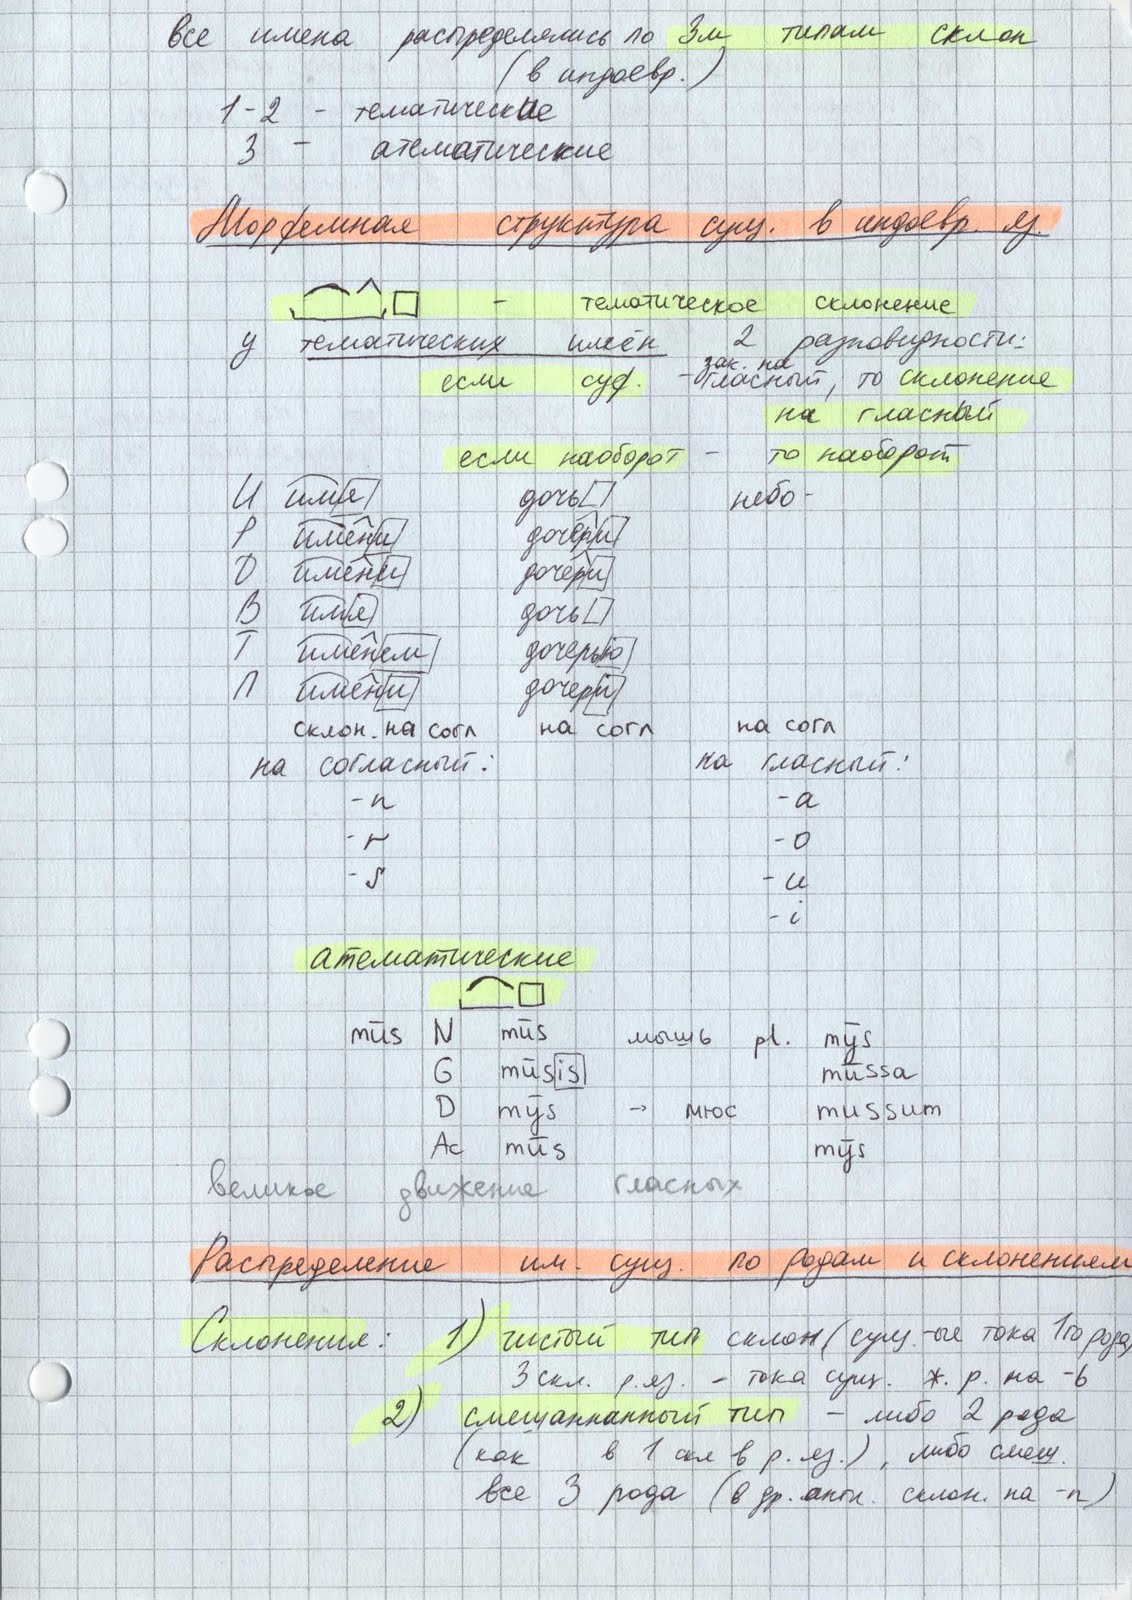 все имена распределялись по 3м типам склон
(в индоевр.)
1-2 - тематические
3 - атематические
Морфемная структура сущ. в индоевр. яз.
- тематическое склонение
у тематических имён 2 разновидности:
если суф. - зак. на гласный, то склонение
на гласный
если наоборот - то наоборот
И имя дочь небо -
Р имени дочери
D имени дочери
В имя дочь
Т именем дочерью
П имени дочери
склон. на согл на согл на согл
на согласный: на гласный:
-n -a
-r -o
-s -u
-i
атематические
mūs N mūs мышь pl. mȳs
G mūsis mūssa
D mȳs → мюс mussum
Ac mūs mȳs
великое движение гласных
Распределение им. сущ. по родам и склонением
Склонения: 1) чистый тип склон (сущ-ые тока 1го рода)
3 скл. р.яз. - тока сущ. ж.р. на -ь
2) смещаннанный тип - либо 2 рода
(как в 1 скл в р.яз.), либо смеш.
все 3 рода (в др. англ. склон. на -n)